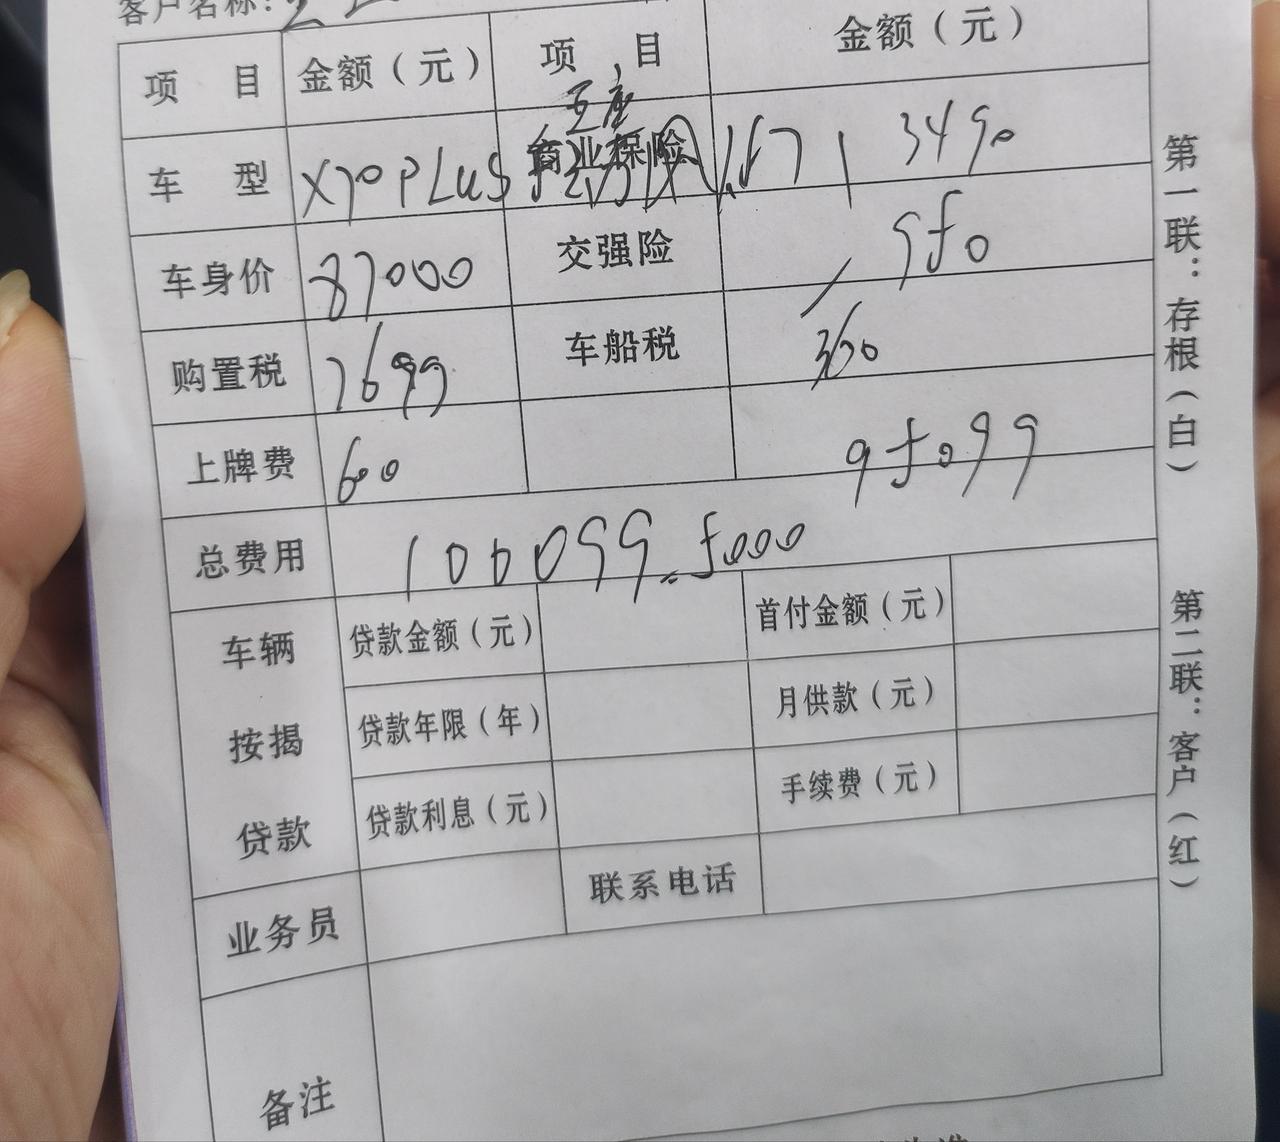 客户名称：
项 目 金额（元） 项 目 金额（元）
五座
车 型 X70PLUS 商业保险 1.5T 3490
车身价 87000 交强险 950
购置税 7699 车船税 360
上牌费 600 95099
总费用 100099 - 5000
车辆按揭贷款 贷款金额（元） 首付金额（元）
贷款年限（年） 月供款（元）
贷款利息（元） 手续费（元）
业务员 联系电话
备注
第一联：存根（白）
第二联：客户（红）